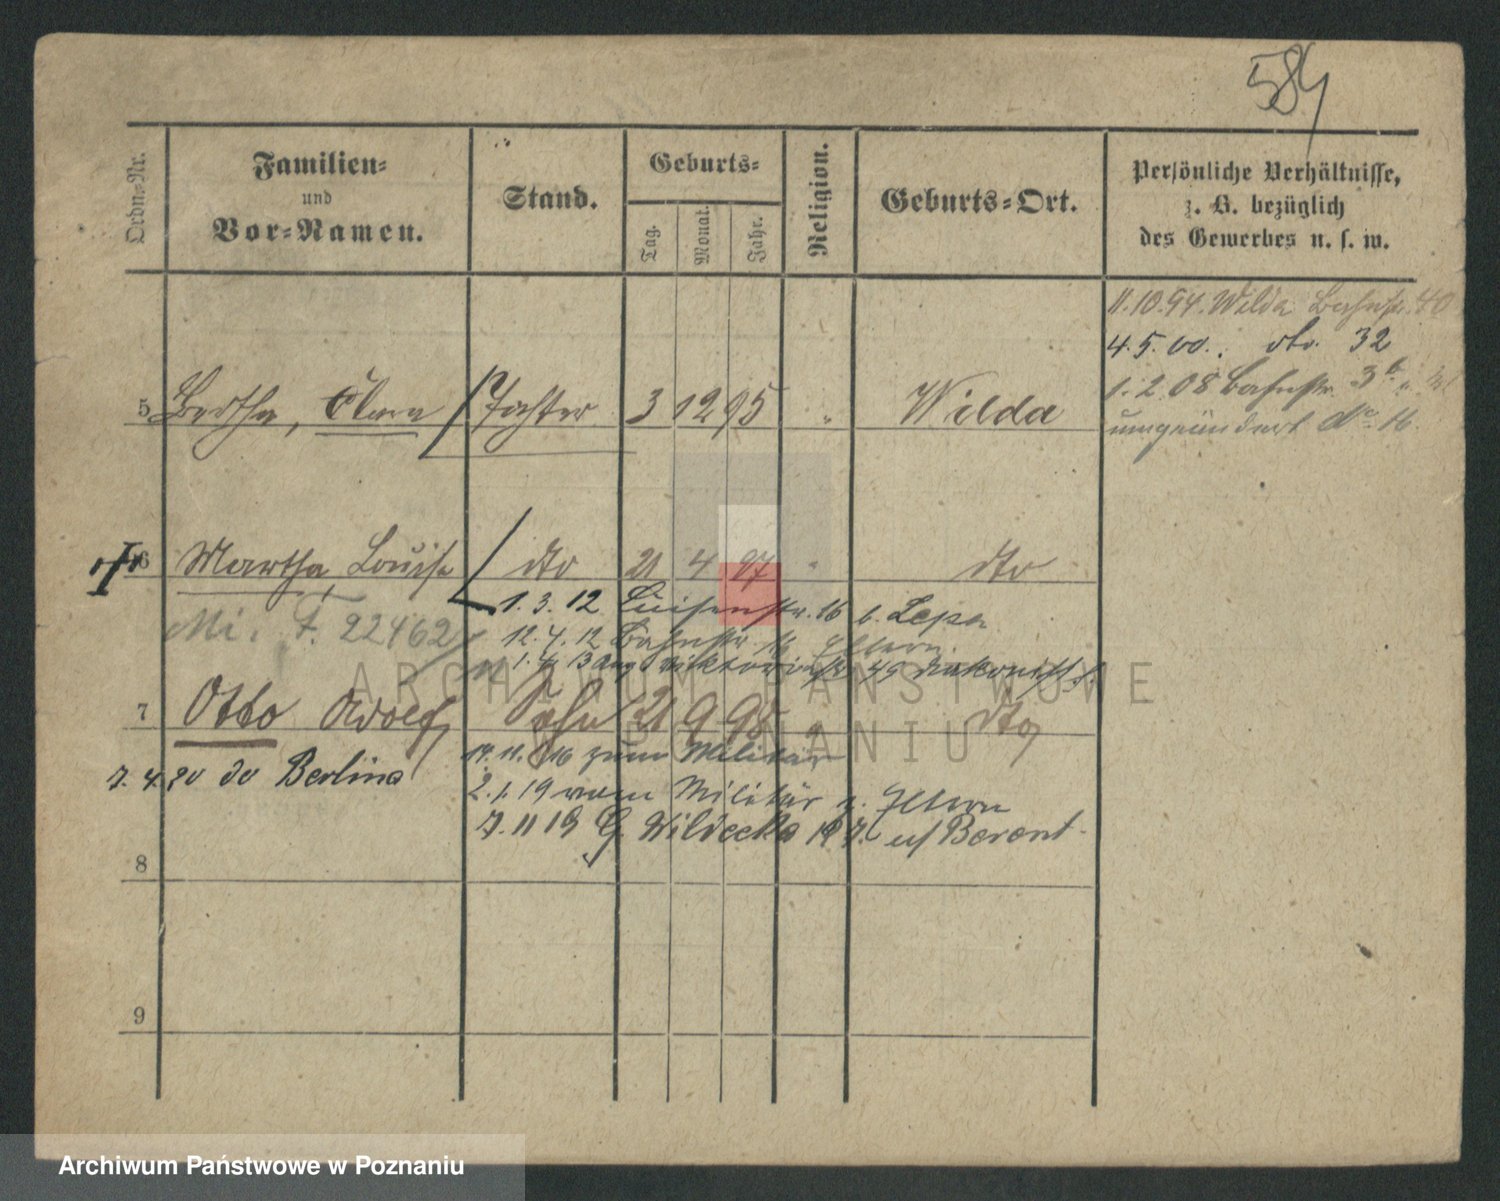 584
Ordn.-Nr.
Familien-
und
Vor-Namen.
Stand.
Geburts-
Tag.
Monat.
Jahr.
Religion.
Geburts-Ort.
Persönliche Verhältnisse,
z. B. bezüglich
des Gewerbes u. s. w.
11.10.94. Wilda Bahnstr. 40
4.5.00. dto. 32
1.2.08 Bahnstr. 3
umgeändert No 16.
5 Bertha, Clara Tochter 3 12 95 " Wilda
6 Martha, Louise dto 21 4 97 " dto
1. 3. 12 Luisenstr. 16 b.
Mi. F. 22462
12. 4. 12 Bahnstr 16 Eltern.
1. 4. 13 Viktoriastr 49
7 Otto Adolf Sohn 21 9 98 " dto
14. 11. 16 zum Militär
7. 4. 20 do Berlin
2. 1. 19 vom Militär z. Eltern
7. 11 19 G. Wildecka 19
8
9
ARCHIWUM PAŃSTWOWE
W POZNANIU
Archiwum Państwowe w Poznaniu